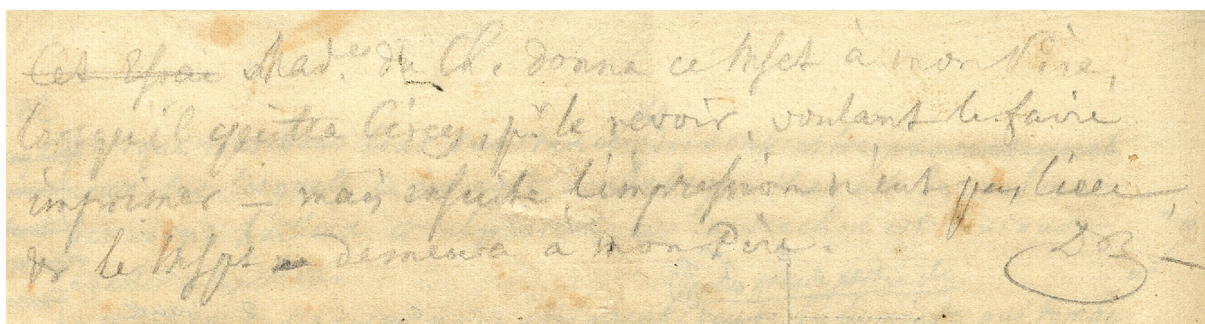 Cet Essai Mad.e du Ch. donna ce Mset à mon Père,
lorsqu'il quitta Cirey, pr. le revoir, voulant le faire
imprimer — mais ensuite l'impression n'eut pas lieu,
& le Mspt demeura à mon Père.